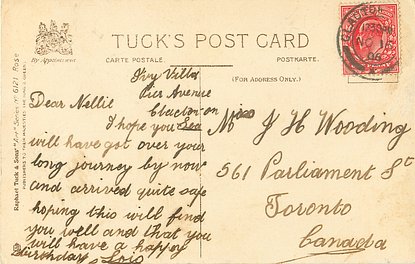 TUCK'S POST CARD
By Appointment
CARTE POSTALE.
POSTKARTE.
(FOR ADDRESS ONLY.)
CLACTON
NO 15
06
Raphael Tuck & Sons' "Art" Series No 6121 Rose
PUBLISHERS TO THEIR MAJESTIES THE KING & QUEEN
Ivy Villa
Pier Avenue
Clacton on
Sea
Dear Nellie
I hope you
will have got over your
long journey by now
and arrived quite safe
hoping this will find
you well and that you
will have a happy
birthday Lois
J H Wooding
561 Parliament St
Toronto
Canada